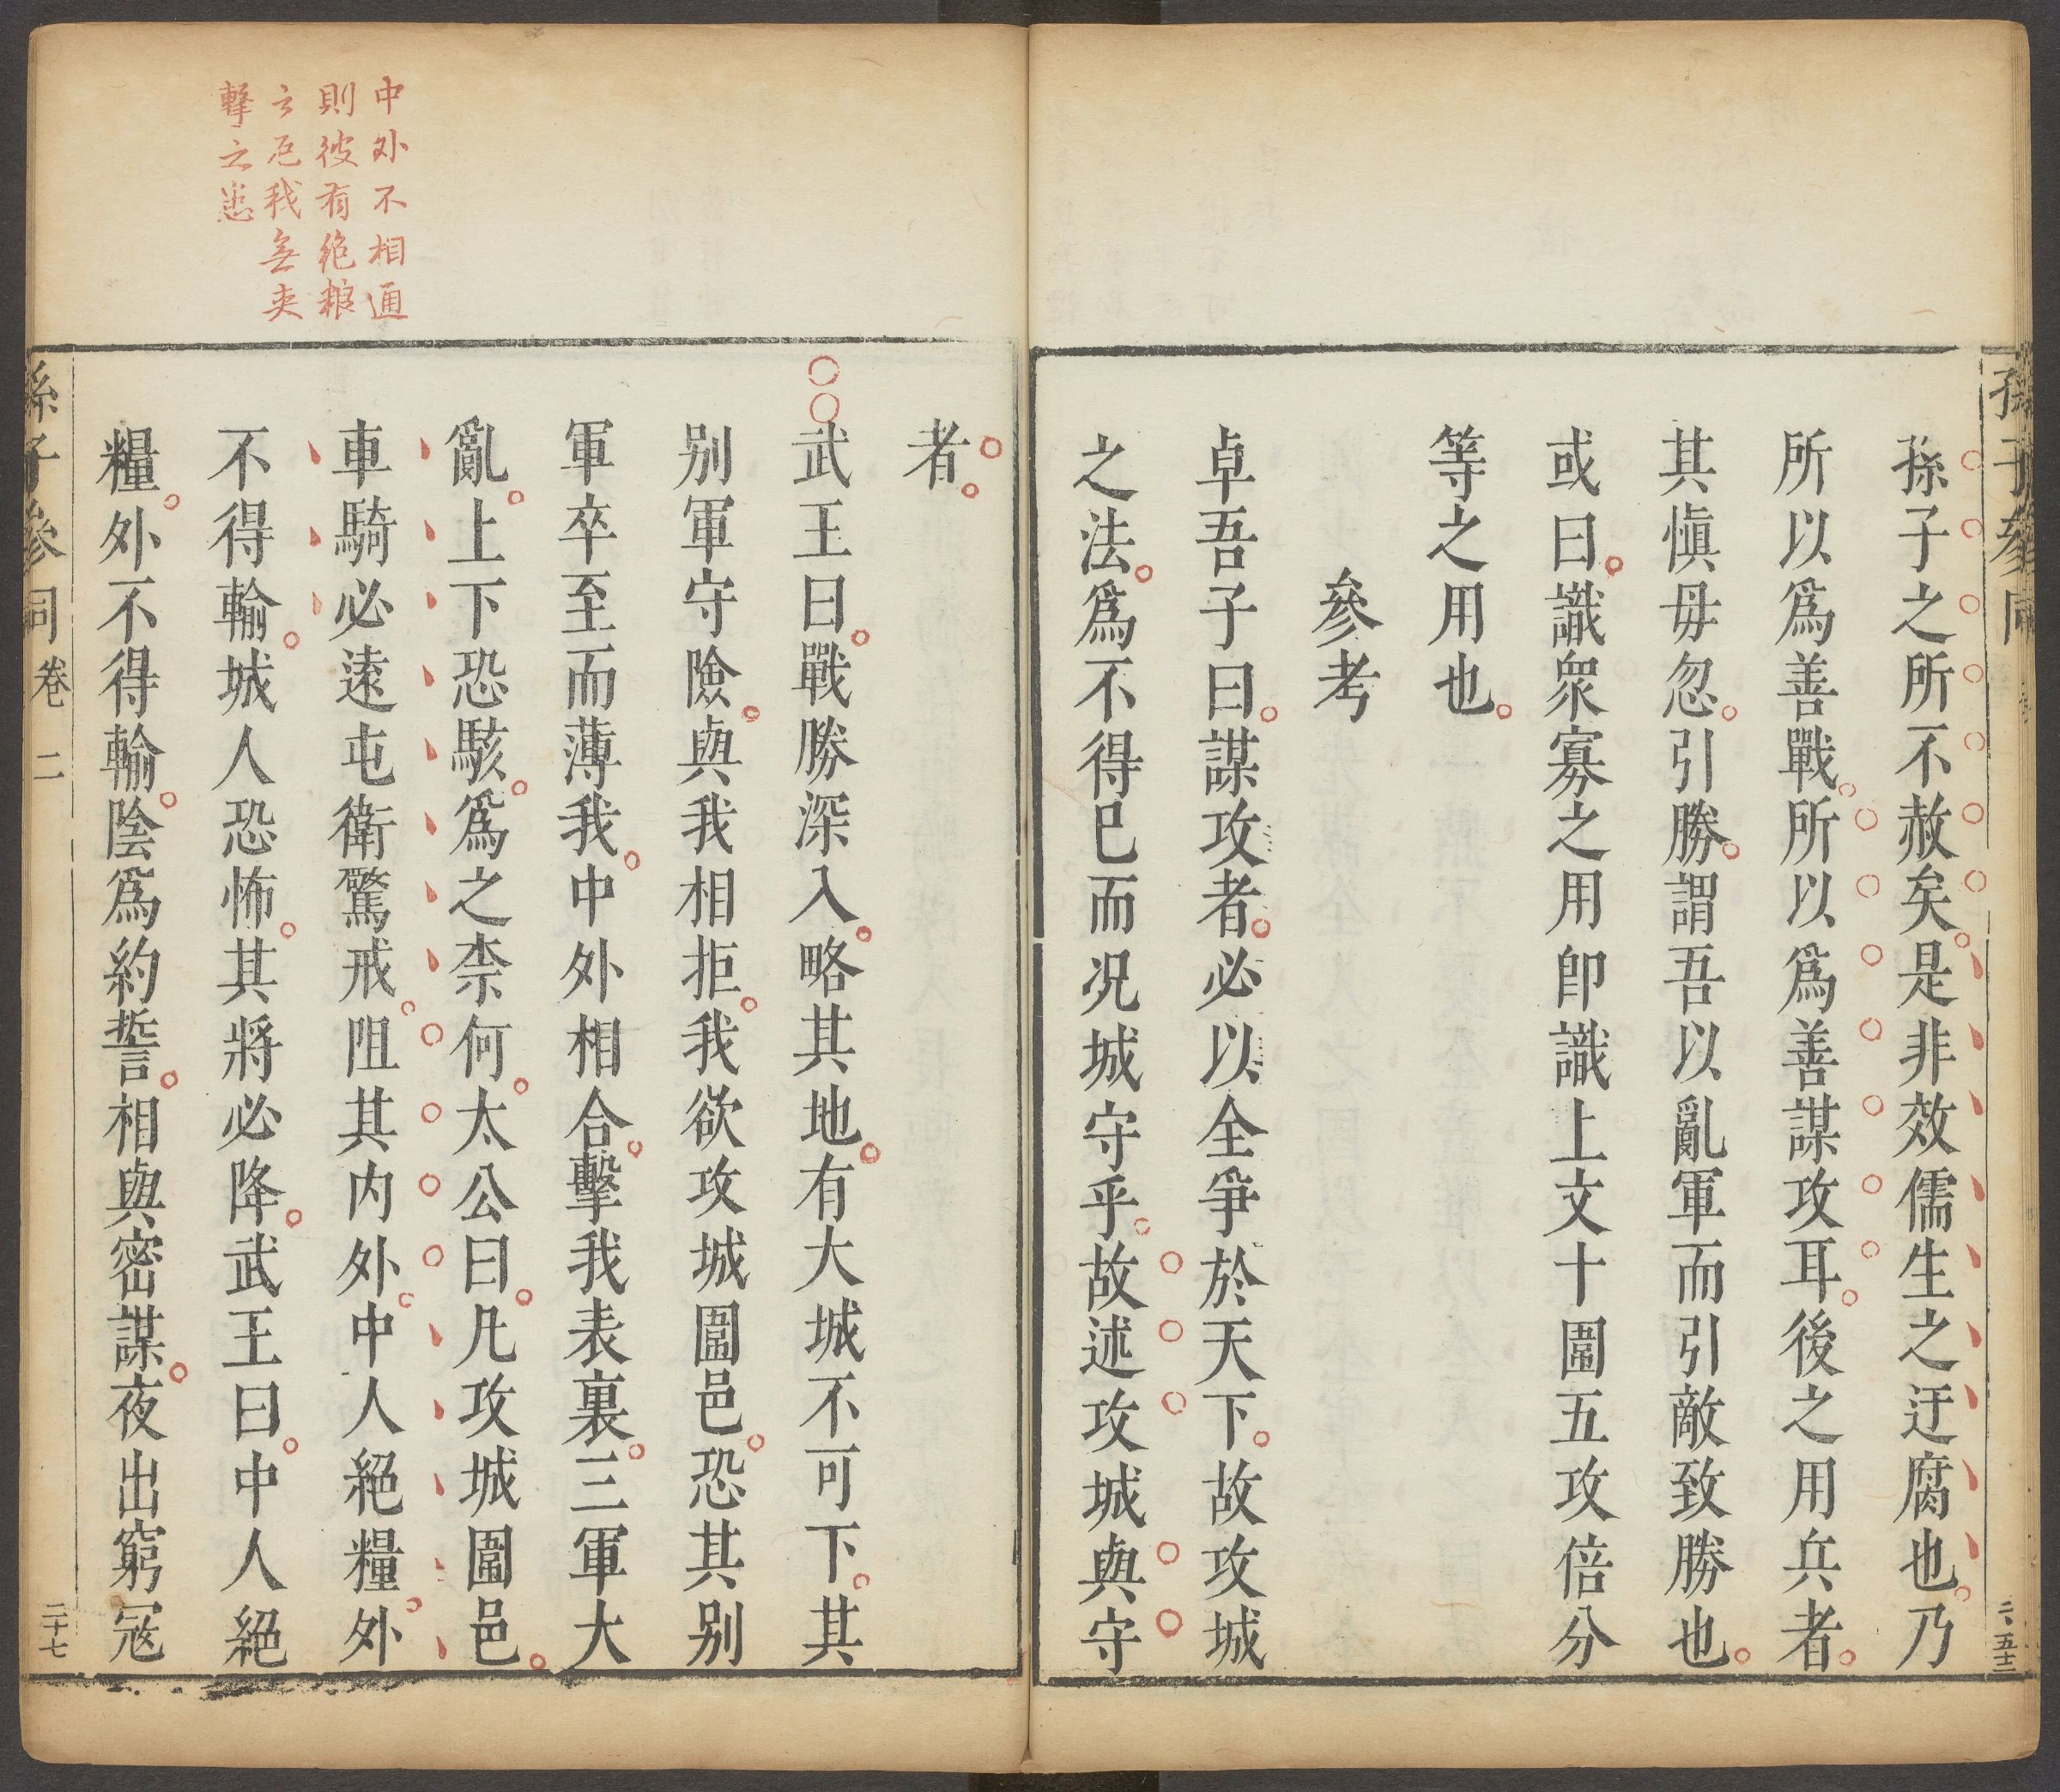 孫子參同
孫子之所不赦矣是非效儒生之迂腐也乃
所以爲善戰所以爲善謀攻耳後之用兵者
其愼毋忽引勝謂吾以亂軍而引敵致勝也
或曰識衆寡之用卽識上文十圍五攻倍分
等之用也
參考
卓吾子曰謀攻者必以全爭於天下故攻城
之法爲不得已而况城守乎故述攻城與守
者
武王曰戰勝深入略其地有大城不可下其
别軍守險與我相拒我欲攻城圍邑恐其别
軍卒至而薄我中外相合擊我表裏三軍大
亂上下恐駭爲之柰何太公曰凡攻城圍邑
車騎必遠屯衛驚戒阻其内外中人絕糧外
不得輸城人恐怖其將必降武王曰中人絕
糧外不得輸陰爲約誓相與密謀夜出窮寇
孫子參同卷二
二十七
中外不相通
則彼有絶糧
之厄我無夾
擊之患